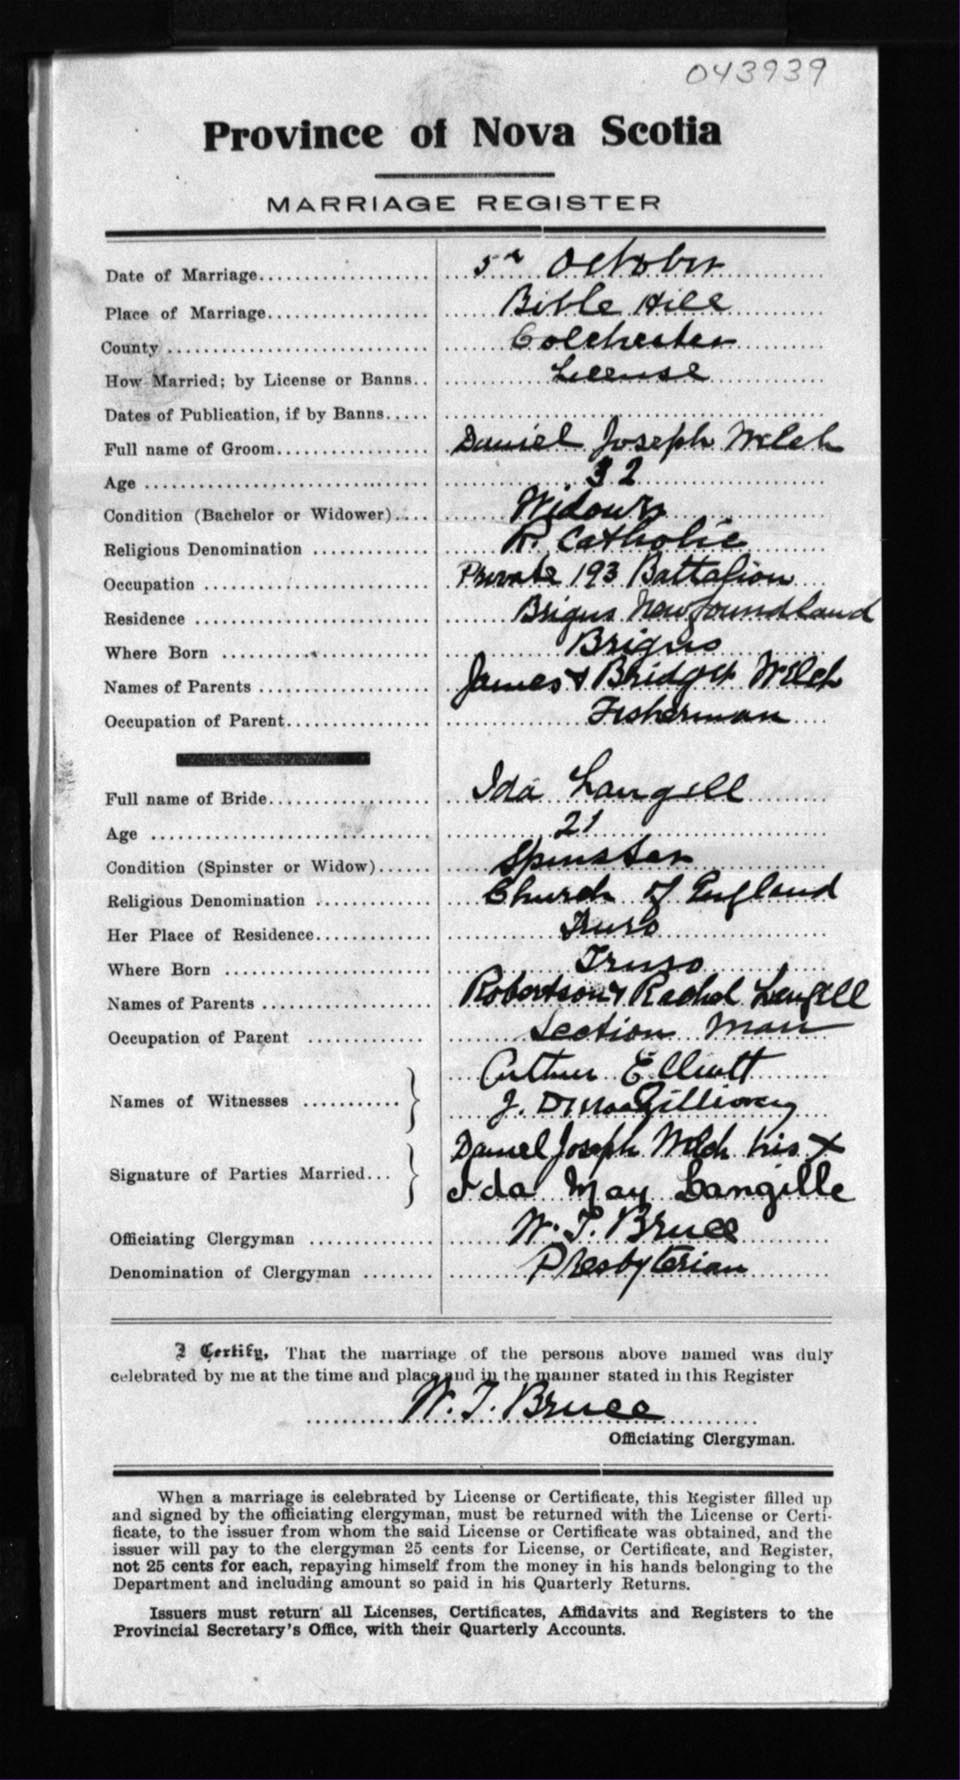 043939
Province of Nova Scotia
MARRIAGE REGISTER
Date of Marriage 5th October
Place of Marriage Bible Hill
County Colchester
How Married; by License or Banns License
Dates of Publication, if by Banns
Full name of Groom Daniel Joseph Welch
Age 32
Condition (Bachelor or Widower) Widower
Religious Denomination R. Catholic
Occupation Private 193 Battalion
Residence Brigus Newfoundland
Where Born Brigus
Names of Parents James & Bridget Welch
Occupation of Parent Fisherman
Full name of Bride Ida Langill
Age 21
Condition (Spinster or Widow) Spinster
Religious Denomination Church of England
Her Place of Residence Truro
Where Born Truro
Names of Parents Robertson & Rachel Langill
Occupation of Parent Section Man
Names of Witnesses Arthur Elliott
J. D. MacGillivray
Signature of Parties Married Daniel Joseph Welch his X
Ida May Langille
Officiating Clergyman W. T. Bruce
Denomination of Clergyman Presbyterian
I Certify, That the marriage of the persons above named was duly
celebrated by me at the time and place and in the manner stated in this Register
W. T. Bruce
Officiating Clergyman.
When a marriage is celebrated by License or Certificate, this Register filled up
and signed by the officiating clergyman, must be returned with the License or Certi-
ficate, to the issuer from whom the said License or Certificate was obtained, and the
issuer will pay to the clergyman 25 cents for License, or Certificate, and Register,
not 25 cents for each, repaying himself from the money in his hands belonging to the
Department and including amount so paid in his Quarterly Returns.
Issuers must return all Licenses, Certificates, Affidavits and Registers to the
Provincial Secretary's Office, with their Quarterly Accounts.